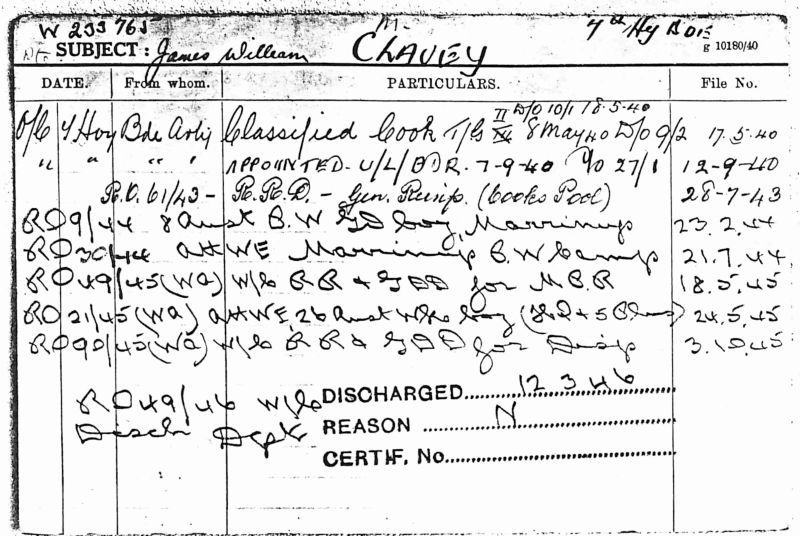 W 233765 M. 7th Hy Bde
SUBJECT: James William CLAVEY g 10180/40
DATE. From whom. PARTICULARS. File No.
II D/O 10/1 18-5-40
O/C 7 Hvy Bde Arty Classified Cook T/G 8 May 40 D/O 9/2 17.5.40
" " " " APPOINTED - U/L/BDR. 7-9-40 27/1 12-9-40
R.O. 61/43 - R.R.D. - Gen. Reinf. (Cooks Pool) 28-7-43
RO 9/44 8 Aust B.W Marrinup 23.2.44
RO 30/44 att WE Marrinup B.W Camp 21.7.44
RO 49/45 (WA) W/E R R & GDD for M.B.R 18.5.45
RO 21/45 (WA) att WE, 26 Aust 24.5.45
RO 90/45 (WA) R R & GDD for Disp 3.10.45
RO 49/46 DISCHARGED 12 3 46
Disch Dept REASON N
CERTIF. No.